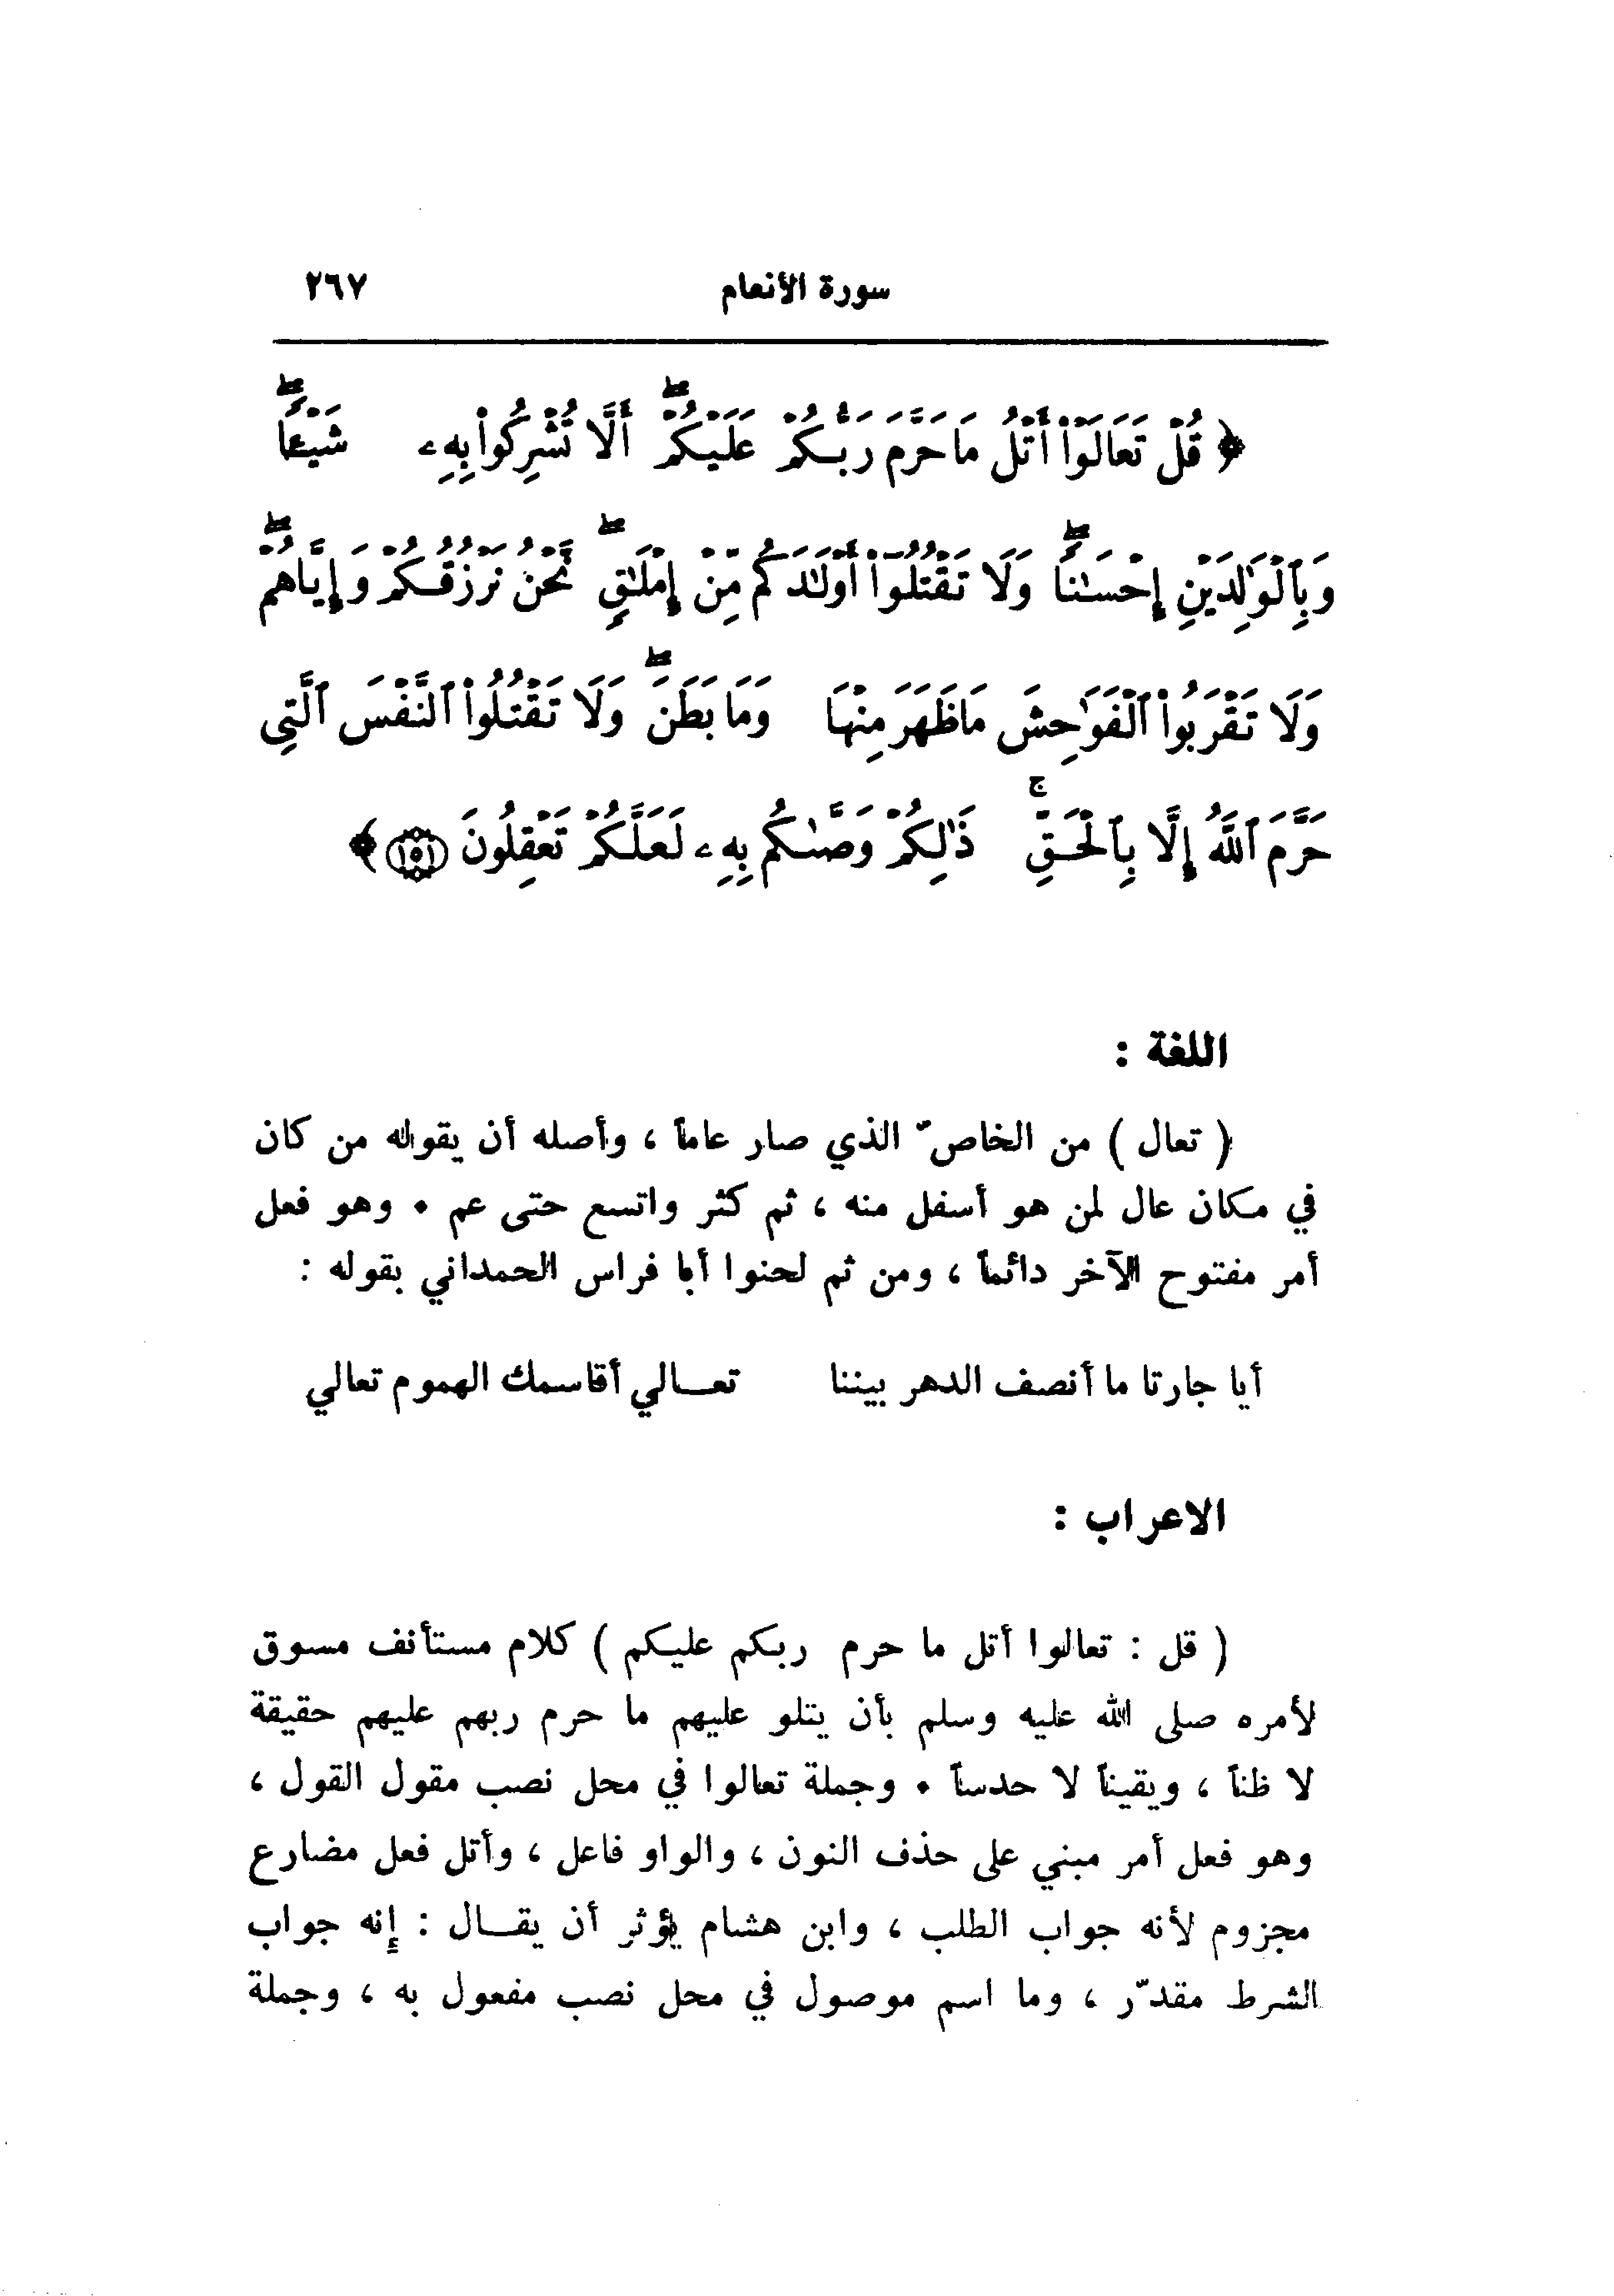 سورة الأنعام ٢٦٧
﴿ قُلْ تَعَالَوْا۟ أَتْلُ مَا حَرَّمَ رَبُّكُمْ عَلَيْكُمْ ۖ أَلَّا تُشْرِكُوا۟ بِهِۦ شَيْـًٔا ۖ
وَبِٱلْوَٰلِدَيْنِ إِحْسَـٰنًا ۖ وَلَا تَقْتُلُوٓا۟ أَوْلَـٰدَكُم مِّنْ إِمْلَـٰقٍ ۖ نَّحْنُ نَرْزُقُكُمْ وَإِيَّاهُمْ ۖ
وَلَا تَقْرَبُوا۟ ٱلْفَوَٰحِشَ مَا ظَهَرَ مِنْهَا وَمَا بَطَنَ ۖ وَلَا تَقْتُلُوا۟ ٱلنَّفْسَ ٱلَّتِى
حَرَّمَ ٱللَّهُ إِلَّا بِٱلْحَقِّ ۚ ذَٰلِكُمْ وَصَّىٰكُم بِهِۦ لَعَلَّكُمْ تَعْقِلُونَ ﴿١٥١﴾ ﴾
اللغة :
( تعال ) من الخاصّ الذي صار عاماً ، وأصله أن يقوله من كان
في مكان عال لمن هو أسفل منه ، ثم كثر واتسع حتى عم ٠ وهو فعل
أمر مفتوح الآخر دائماً ، ومن ثم لحنوا أبا فراس الحمداني بقوله :
أيا جارتا ما أنصف الدهر بيننا تعـــالي أقاسمك الهموم تعالي
الاعراب :
( قل : تعالوا أتل ما حرم ربكم عليكم ) كلام مستأنف مسوق
لأمره صلى الله عليه وسلم بأن يتلو عليهم ما حرم ربهم عليهم حقيقة
لا ظناً ، ويقيناً لا حدساً ٠ وجملة تعالوا في محل نصب مقول القول ،
وهو فعل أمر مبني على حذف النون ، والواو فاعل ، وأتل فعل مضارع
مجزوم لأنه جواب الطلب ، وابن هشام يؤثر أن يقـــال : إنه جواب
الشرط مقدّر ، وما اسم موصول في محل نصب مفعول به ، وجملة